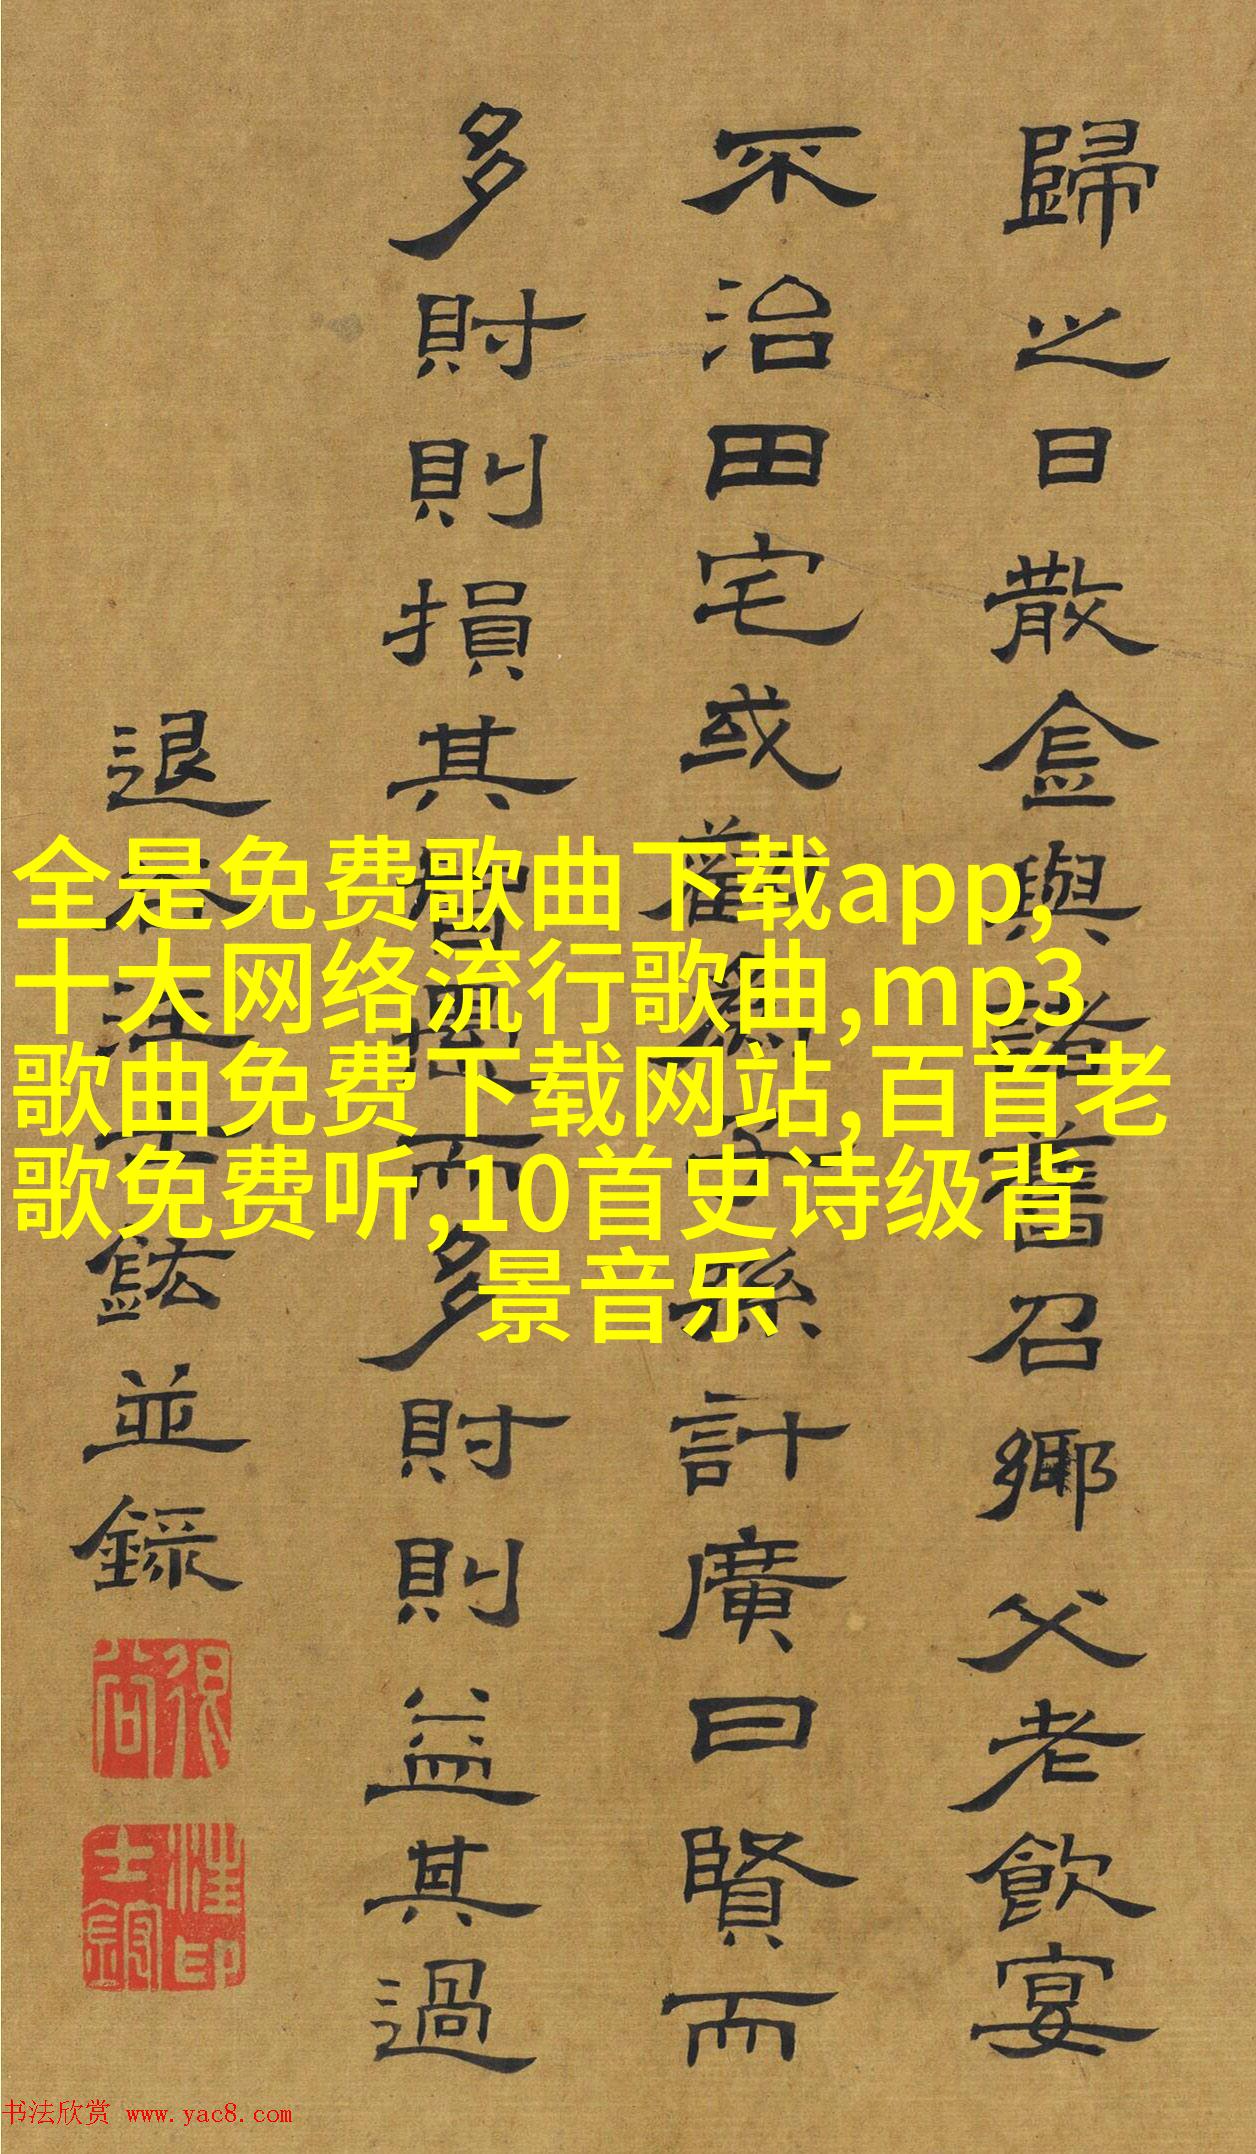 歸之日散金與諸舊召鄉父老飲宴
不治田宅或勸爲子孫計廣曰賢而
多財則損其智愚而多財則益其過
退谷汪士鋐並錄
全是免费歌曲下载app,
十大网络流行歌曲,mp3
歌曲免费下载网站,百首老
歌免费听,10首史诗级背
景音乐
书法欣赏 www.yac8.com